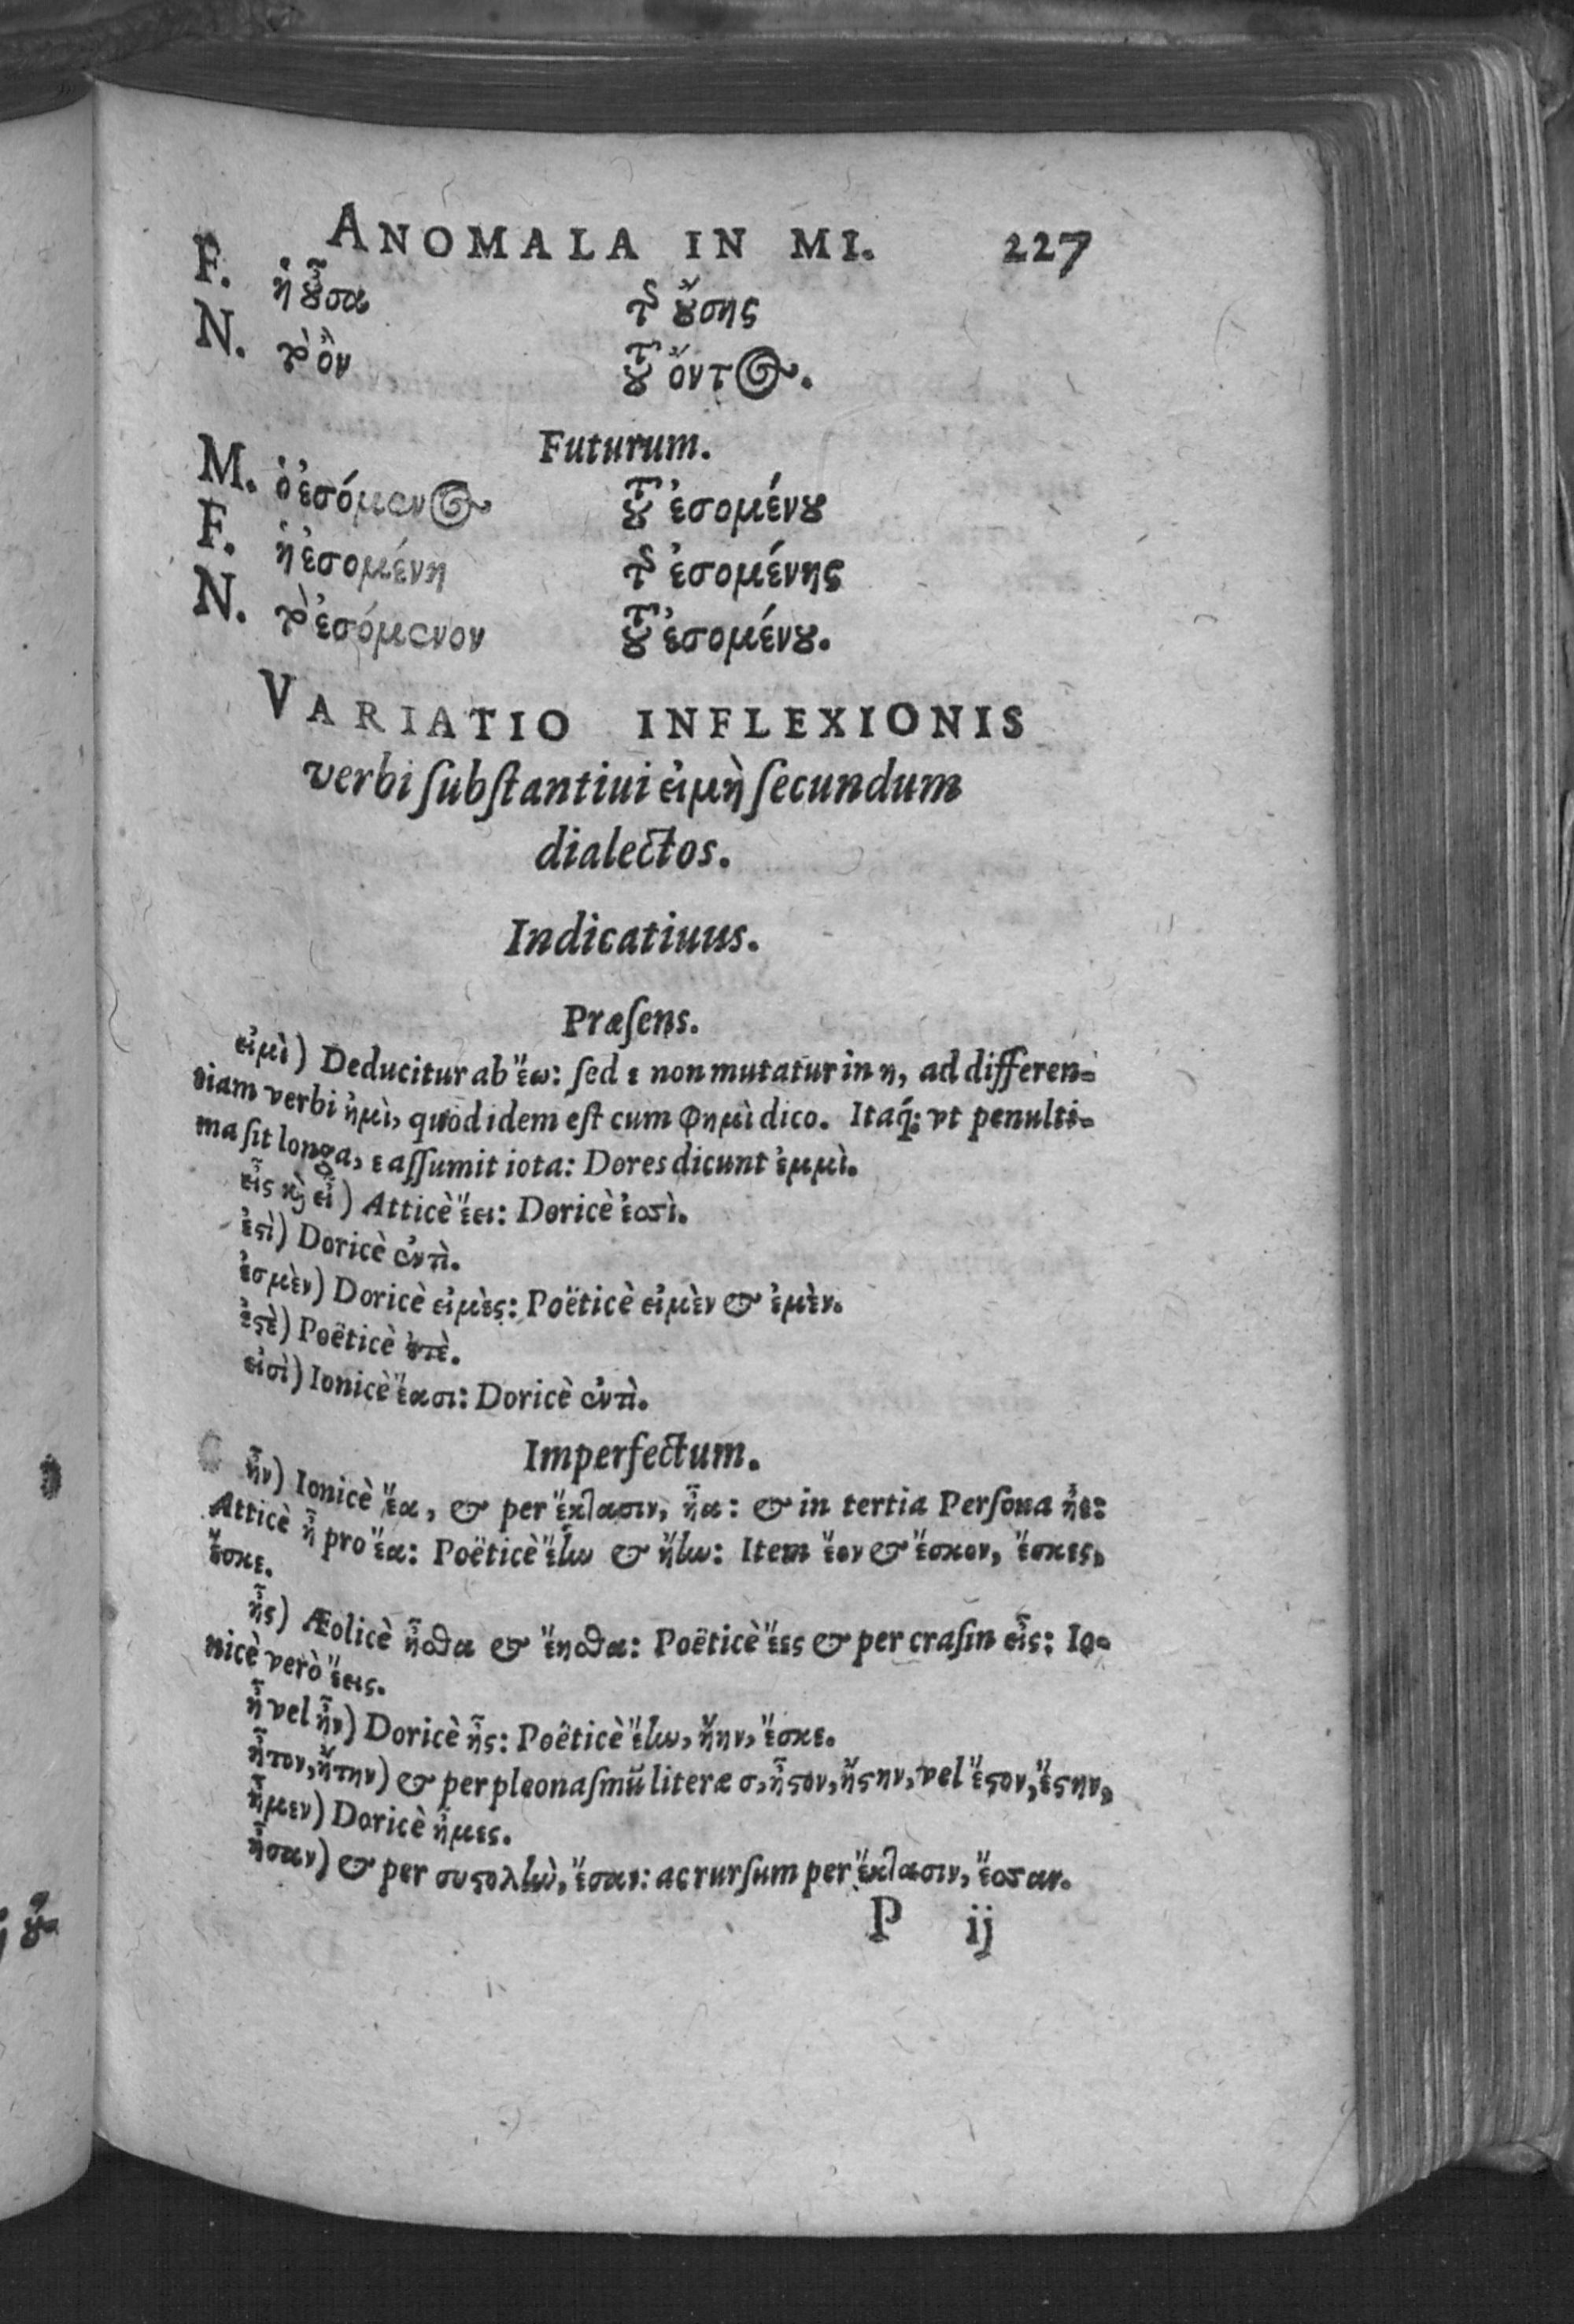 ANOMALA IN MI. 227
F. ἡ οὖσα τῆς οὔσης
N. τὸ ὂν τοῦ ὄντος.
Futurum.
M. ὁ ἐσόμενος τοῦ ἐσομένου
F. ἡ ἐσομένη τῆς ἐσομένης
N. τὸ ἐσόμενον τοῦ ἐσομένου.
VARIATIO INFLEXIONIS
verbi ſubſtantiui εἰμὴ ſecundum
dialectos.
Indicatiuus.
Præſens.
εἰμὶ) Deducitur ab ἔω: ſed ε non mutatur in η, ad differen-
tiam verbi ἠμὶ, quod idem eſt cum φημὶ dico. Itaq́; vt penulti-
ma ſit longa, ε aſſumit iota: Dores dicunt ἐμμὶ.
εἶς καὶ εἶ) Atticè ἔει: Doricè ἐσσὶ.
ἐστὶ) Doricè ἐντὶ.
ἐσμὲν) Doricè εἰμὲς: Poëticè εἰμὲν & ἐμὲν.
ἐστὲ) Poëticè
εἰσὶ) Ionicè ἔασι: Doricè ἐντὶ.
Imperfectum.
ἦν) Ionicè ἔα, & per ἔκτασιν, ἦα: & in tertia Perſona ἦε:
Atticè ἦ pro ἔα: Poëticè ἔην & ἤην: Item ἔον & ἔσκον, ἔσκες,
ἔσκε.
ἦς) Æolicè ἦσθα & ἔησθα: Poëticè ἔες & per craſin εἶς: Io-
nicè verò ἔεις.
ἦ vel ἦν) Doricè ἦς: Poëticè ἔην, ἤην, ἔσκε.
ἦτον, ἤτην) & per pleonaſmū literæ σ, ἦστον, ἤστην, vel ἔστον, ἔστην,
ἦμεν) Doricè ἦμες.
ἦσαν) & per συστολὴν, ἔσαν: ac rurſum per ἔκτασιν, ἔσσαν.
P ij